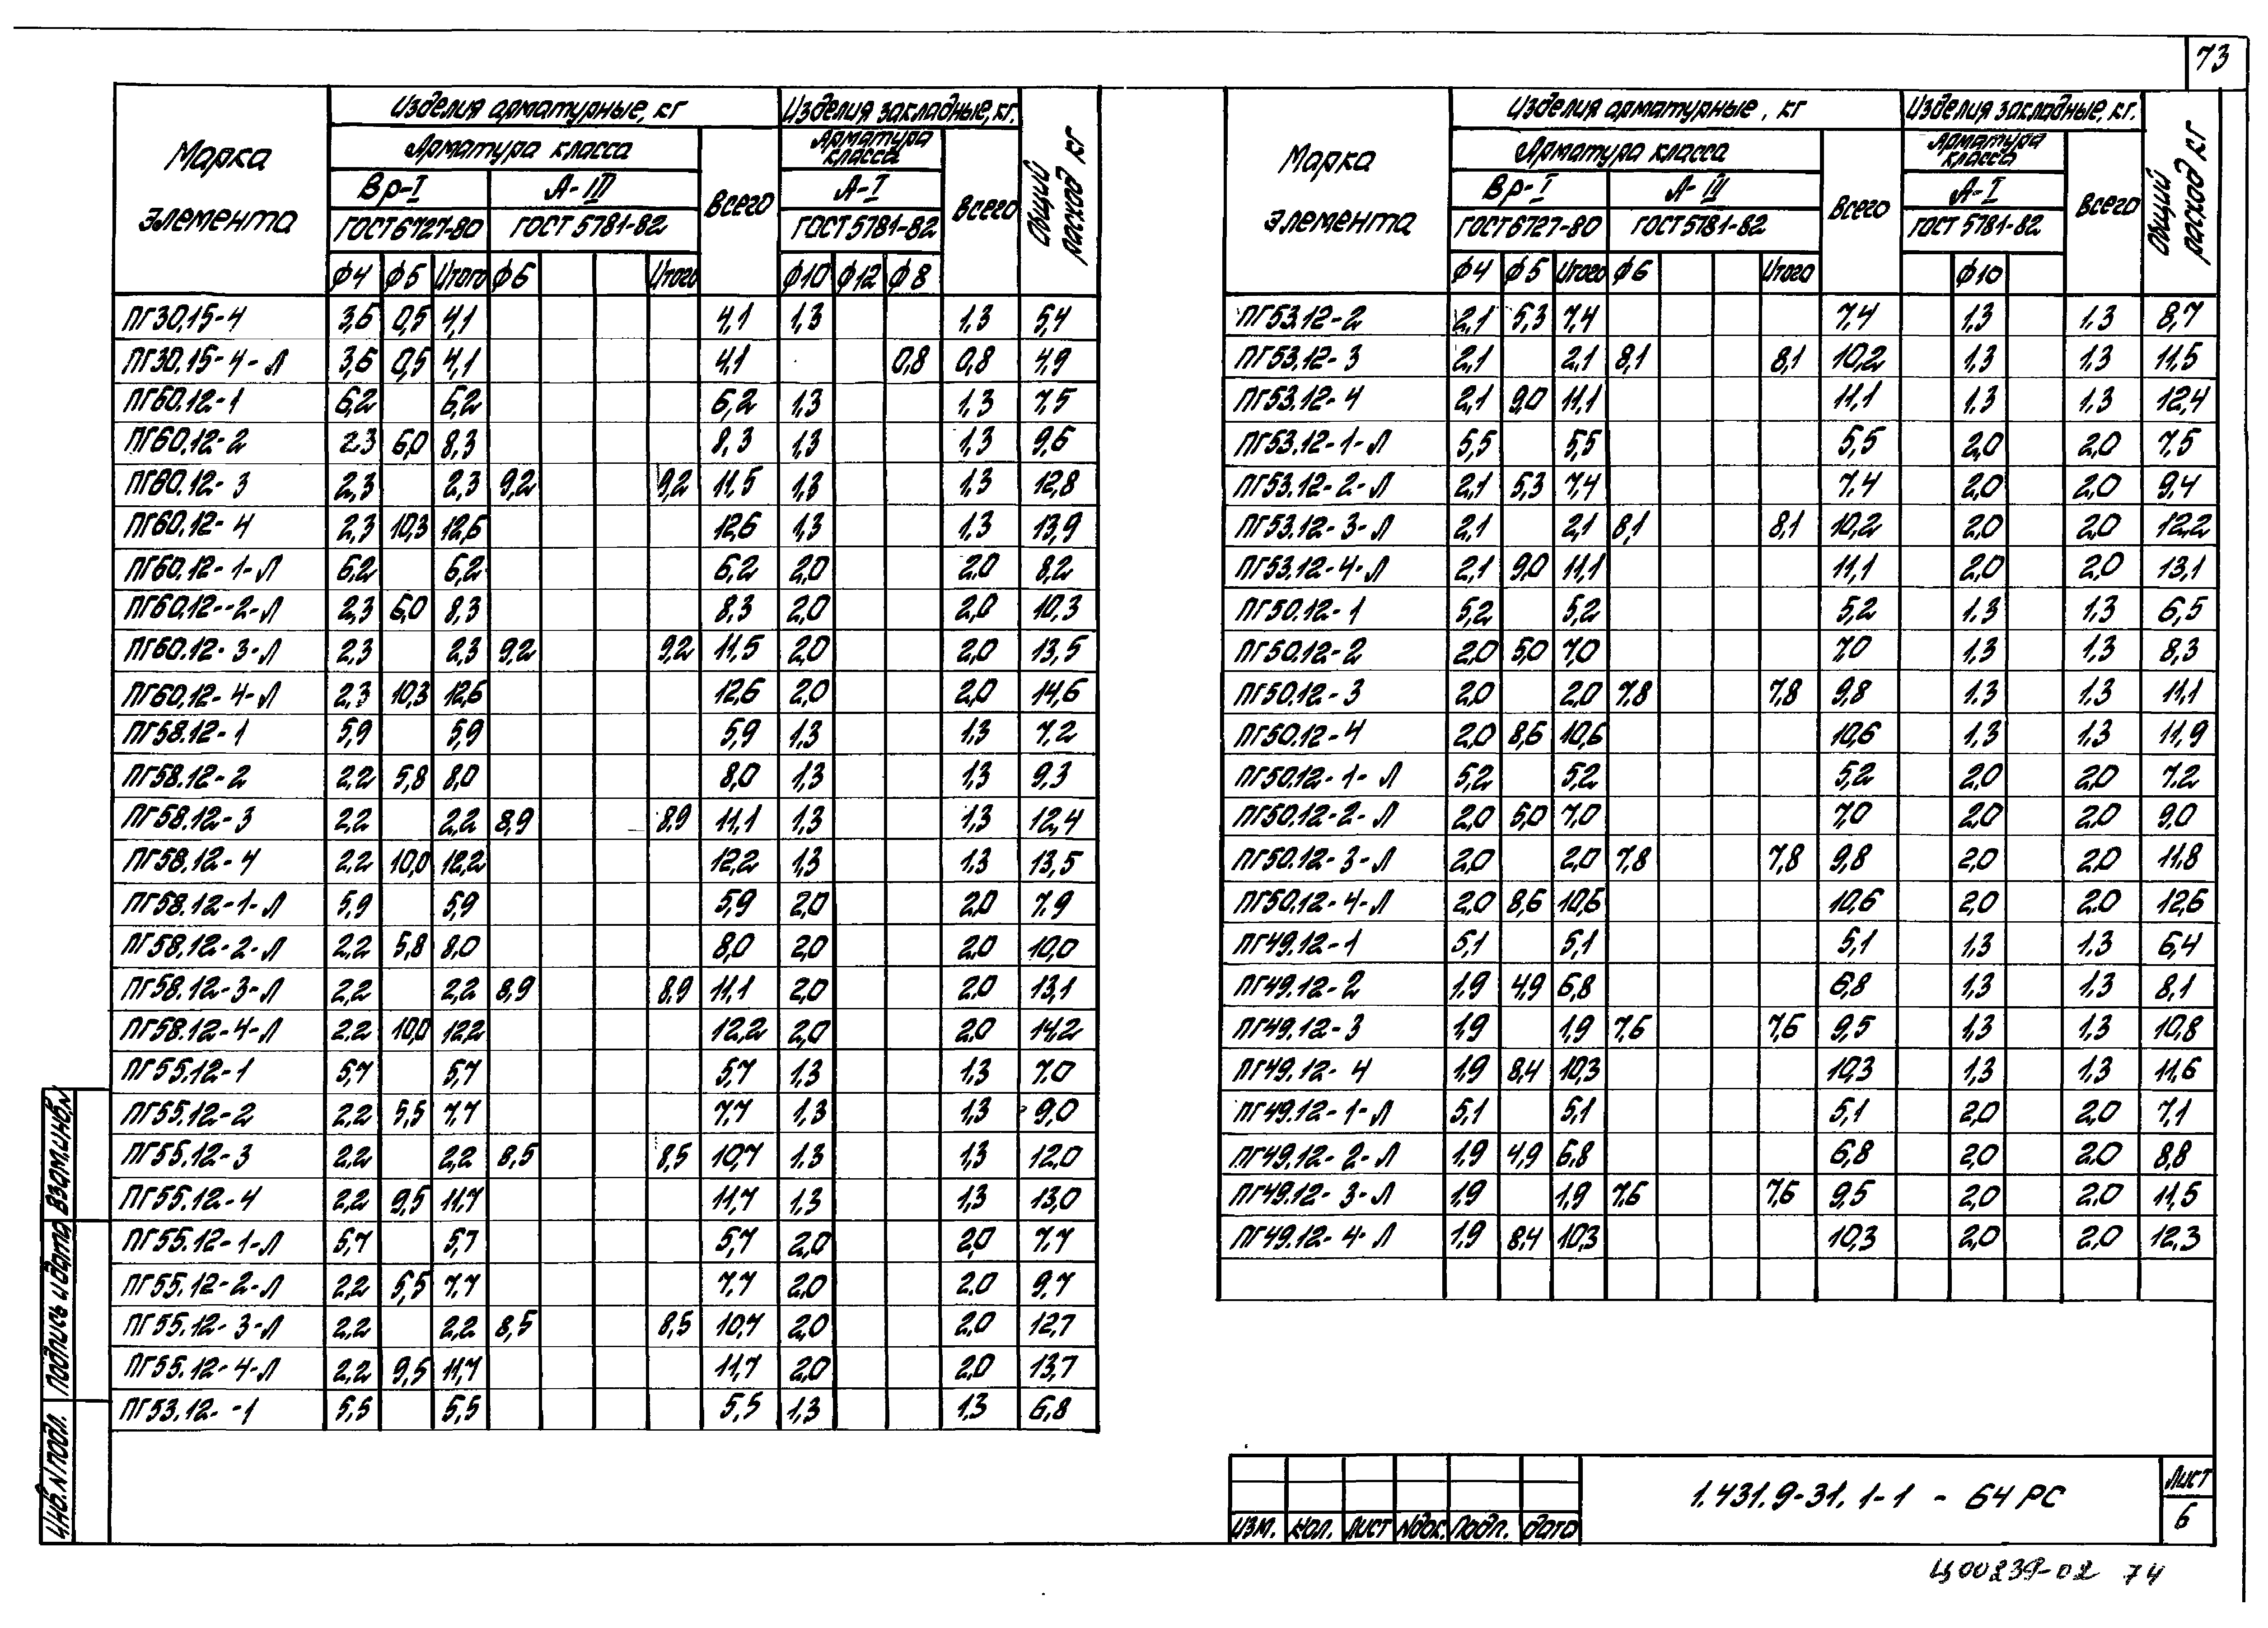 73
Марка элемента | Изделия арматурные, кг | Изделия закладные, кг. | Общий расход кг
Арматура класса | Всего | Арматура класса | Всего
Вр-I | А-III | А-I
ГОСТ 6727-80 | ГОСТ 5781-82 | ГОСТ 5781-82
ф4 ф5 Итого ф6 Итого ф10 ф12 ф8
ПГ30.15-4 3,6 0,5 4,1 4,1 1,3 1,3 5,4
ПГ30.15-4-Л 3,6 0,5 4,1 4,1 0,8 0,8 4,9
ПГ60.12-1 6,2 6,2 6,2 1,3 1,3 7,5
ПГ60.12-2 2,3 6,0 8,3 8,3 1,3 1,3 9,6
ПГ60.12-3 2,3 2,3 9,2 9,2 11,5 1,3 1,3 12,8
ПГ60.12-4 2,3 10,3 12,6 12,6 1,3 1,3 13,9
ПГ60.12-1-Л 6,2 6,2 6,2 2,0 2,0 8,2
ПГ60.12--2-Л 2,3 6,0 8,3 8,3 2,0 2,0 10,3
ПГ60.12-3-Л 2,3 2,3 9,2 9,2 11,5 2,0 2,0 13,5
ПГ60.12-4-Л 2,3 10,3 12,6 12,6 2,0 2,0 14,6
ПГ58.12-1 5,9 5,9 5,9 1,3 1,3 7,2
ПГ58.12-2 2,2 5,8 8,0 8,0 1,3 1,3 9,3
ПГ58.12-3 2,2 2,2 8,9 8,9 11,1 1,3 1,3 12,4
ПГ58.12-4 2,2 10,0 12,2 12,2 1,3 1,3 13,5
ПГ58.12-1-Л 5,9 5,9 5,9 2,0 2,0 7,9
ПГ58.12-2-Л 2,2 5,8 8,0 8,0 2,0 2,0 10,0
ПГ58.12-3-Л 2,2 2,2 8,9 8,9 11,1 2,0 2,0 13,1
ПГ58.12-4-Л 2,2 10,0 12,2 12,2 2,0 2,0 14,2
ПГ55.12-1 5,7 5,7 5,7 1,3 1,3 7,0
ПГ55.12-2 2,2 5,5 7,7 7,7 1,3 1,3 9,0
ПГ55.12-3 2,2 2,2 8,5 8,5 10,7 1,3 1,3 12,0
ПГ55.12-4 2,2 9,5 11,7 11,7 1,3 1,3 13,0
ПГ55.12-1-Л 5,7 5,7 5,7 2,0 2,0 7,7
ПГ55.12-2-Л 2,2 5,5 7,7 7,7 2,0 2,0 9,7
ПГ55.12-3-Л 2,2 2,2 8,5 8,5 10,7 2,0 2,0 12,7
ПГ55.12-4-Л 2,2 9,5 11,7 11,7 2,0 2,0 13,7
ПГ53.12--1 5,5 5,5 5,5 1,3 1,3 6,8
Марка элемента | Изделия арматурные, кг | Изделия закладные, кг. | Общий расход кг
Арматура класса | Всего | Арматура класса | Всего
Вр-I | А-III | А-I
ГОСТ 6727-80 | ГОСТ 5781-82 | ГОСТ 5781-82
ф4 ф5 Итого ф6 Итого ф10
ПГ53.12-2 2,1 5,3 7,4 7,4 1,3 1,3 8,7
ПГ53.12-3 2,1 2,1 8,1 8,1 10,2 1,3 1,3 11,5
ПГ53.12-4 2,1 9,0 11,1 11,1 1,3 1,3 12,4
ПГ53.12-1-Л 5,5 5,5 5,5 2,0 2,0 7,5
ПГ53.12-2-Л 2,1 5,3 7,4 7,4 2,0 2,0 9,4
ПГ53.12-3-Л 2,1 2,1 8,1 8,1 10,2 2,0 2,0 12,2
ПГ53.12-4-Л 2,1 9,0 11,1 11,1 2,0 2,0 13,1
ПГ50.12-1 5,2 5,2 5,2 1,3 1,3 6,5
ПГ50.12-2 2,0 5,0 7,0 7,0 1,3 1,3 8,3
ПГ50.12-3 2,0 2,0 7,8 7,8 9,8 1,3 1,3 11,1
ПГ50.12-4 2,0 8,6 10,6 10,6 1,3 1,3 11,9
ПГ50.12-1-Л 5,2 5,2 5,2 2,0 2,0 7,2
ПГ50.12-2-Л 2,0 5,0 7,0 7,0 2,0 2,0 9,0
ПГ50.12-3-Л 2,0 2,0 7,8 7,8 9,8 2,0 2,0 11,8
ПГ50.12-4-Л 2,0 8,6 10,6 10,6 2,0 2,0 12,6
ПГ49.12-1 5,1 5,1 5,1 1,3 1,3 6,4
ПГ49.12-2 1,9 4,9 6,8 6,8 1,3 1,3 8,1
ПГ49.12-3 1,9 1,9 7,6 7,6 9,5 1,3 1,3 10,8
ПГ49.12-4 1,9 8,4 10,3 10,3 1,3 1,3 11,6
ПГ49.12-1-Л 5,1 5,1 5,1 2,0 2,0 7,1
ПГ49.12-2-Л 1,9 4,9 6,8 6,8 2,0 2,0 8,8
ПГ49.12-3-Л 1,9 1,9 7,6 7,6 9,5 2,0 2,0 11,5
ПГ49.12-4-Л 1,9 8,4 10,3 10,3 2,0 2,0 12,3
Взам.инв.N
Подпись и дата
Инв.N подл.
Изм. Кол. Лист Nдок. Подп. Дата
1.431.9-31.1-1 - 64РС
Лист
6
Ц00239-02 74